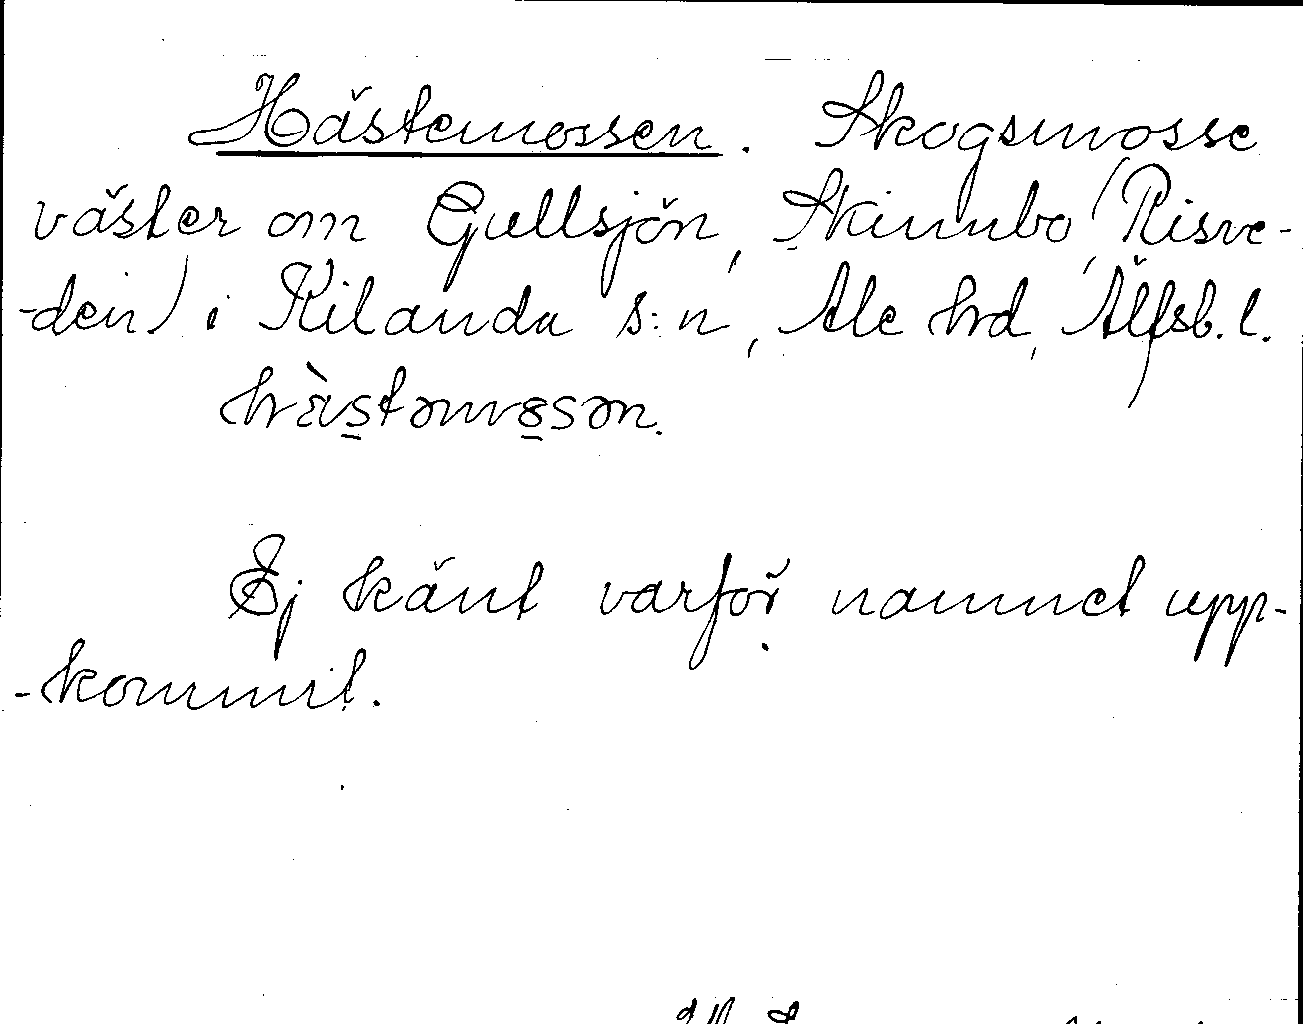 Hästemossen. Skogsmosse
väster om Gullsjön, Skinnbo (Risve-
-den) i Kilanda s:n, Ale hrd, Älfsb. l.
hàstəmɷsən.
Ej känt varför namnet upp-
-kommit.